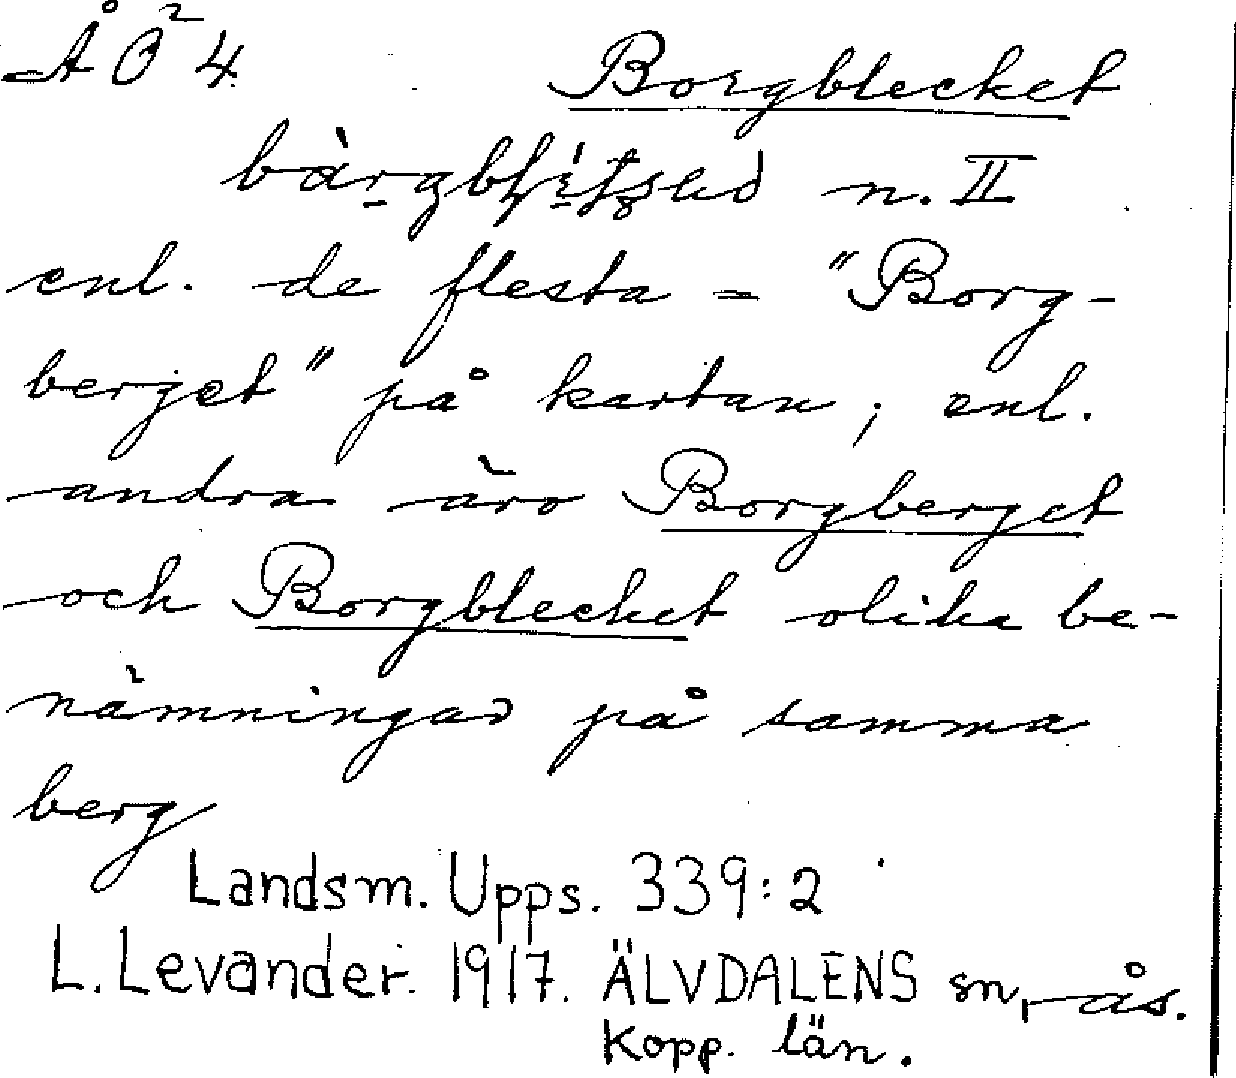 ÅÖ 4
Borgblecket
n. II
enl. de flesta = "Borg-
berget" på kartan; enl.
andra äro Borgberget
och Borgblecket olika be-
nämningar på samma
berg
Landsm. Upps. 339:2
L. Levander. 1917. ÄLVDALENS sn, ås.
Kopp. län.